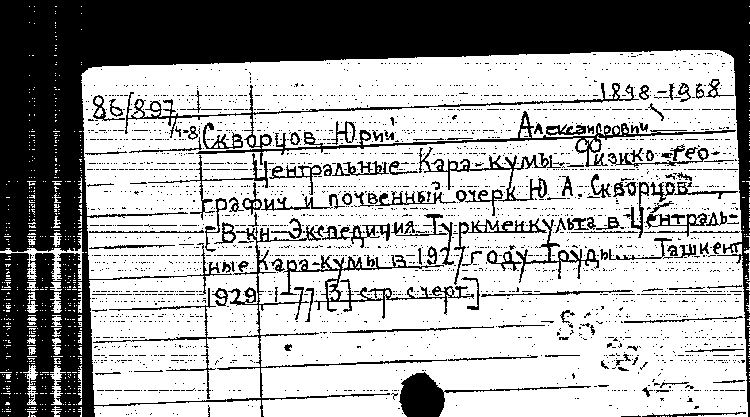 1898-1968
86/897
/4-8
Скворцов, Юрий Александрович
Центральные Кара-кумы. Физико-гео-
графич и почвенный очерк Ю. А. Скворцов
[В кн. Экспедиция Туркменкульта в Централь-
ные Кара-кумы в 1927 году Труды... Ташкент,
1929, 1-77, [3] стр с черт.]
86